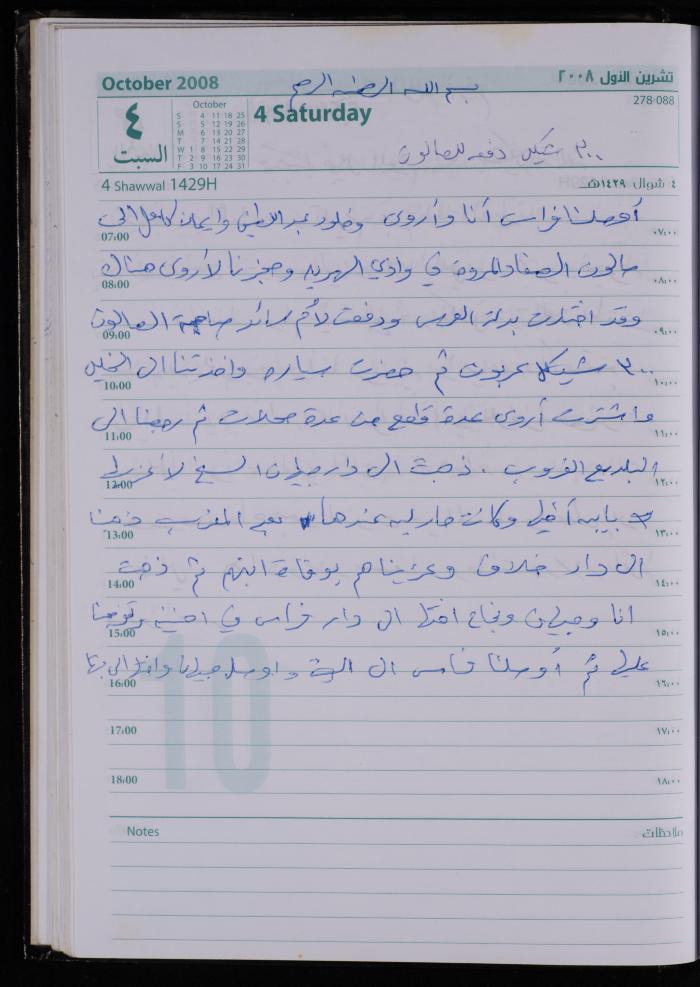 October 2008
تشرين الأول ٢٠٠٨
بسم الله الرحمن الرحيم
278-088
٤
السبت
October
S 4 11 18 25
S 5 12 19 26
M 6 13 20 27
T 7 14 21 28
W 1 8 15 22 29
T 2 9 16 23 30
F 3 10 17 24 31
4 Saturday
٣٠٠ شيكل دفعه للصالون
4 Shawwal 1429H
٤ شوال ١٤٢٩هـ
أوصلنا فراس أنا وأروى وخلود عبد اللطيف وايمان كامل الى
07:00 ٠٧:٠٠
صالون الصفا والمروة في وادي الهرية وحجزنا لأروى هناك
08:00 ٠٨:٠٠
وقد اختارت بدلة العرس ودفعت لأم رائد صاحبة الصالون
09:00 ٠٩:٠٠
٣٠٠ شيكل عربون ثم حضرت سياره واخذتنا الى الخليل
10:00 ١٠:٠٠
واشترت أروى عدة قطع من عدة محلات ثم رجعنا الى
11:00 ١١:٠٠
البلد مع الغروب . ذهبت الى دار
12:00 ١٢:٠٠
وكانت عندها بعد المغرب ذهبنا
13:00 ١٣:٠٠
الى دار خلاف وعزيناهم بوفاة ابنهم ثم ذهبت
14:00 ١٤:٠٠
انا ونجاح اختها الى دار فراس في
15:00 ١٥:٠٠
ثم أوصلنا فراس الى
16:00 ١٦:٠٠
17:00 ١٧:٠٠
18:00 ١٨:٠٠
10
Notes
ملاحظات